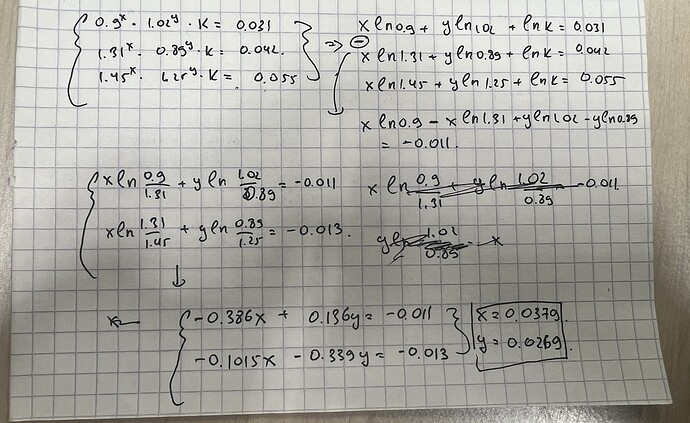 0.9^x · 1.02^y · K = 0.031
1.31^x · 0.89^y · K = 0.042.
1.45^x · 1.25^y · K = 0.055
⇒ ⊖
x ln0.9 + y ln1.02 + lnK = 0.031
x ln1.31 + y ln0.89 + lnK = 0.042
x ln1.45 + y ln1.25 + lnK = 0.055
x ln0.9 - x ln1.31 + y ln1.02 - y ln0.89
= -0.011.
x ln 0.9/1.31 + y ln 1.02/0.89 = -0.011
x ln 1.31/1.45 + y ln 0.89/1.25 = -0.013.
x ln 0.9/1.31 + y ln 1.02/0.89 = -0.011.
y ln 1.02/0.89 - x
↓
-0.386x + 0.136y = -0.011
-0.1015x - 0.339y = -0.013
x = 0.0379.
y = 0.0269.